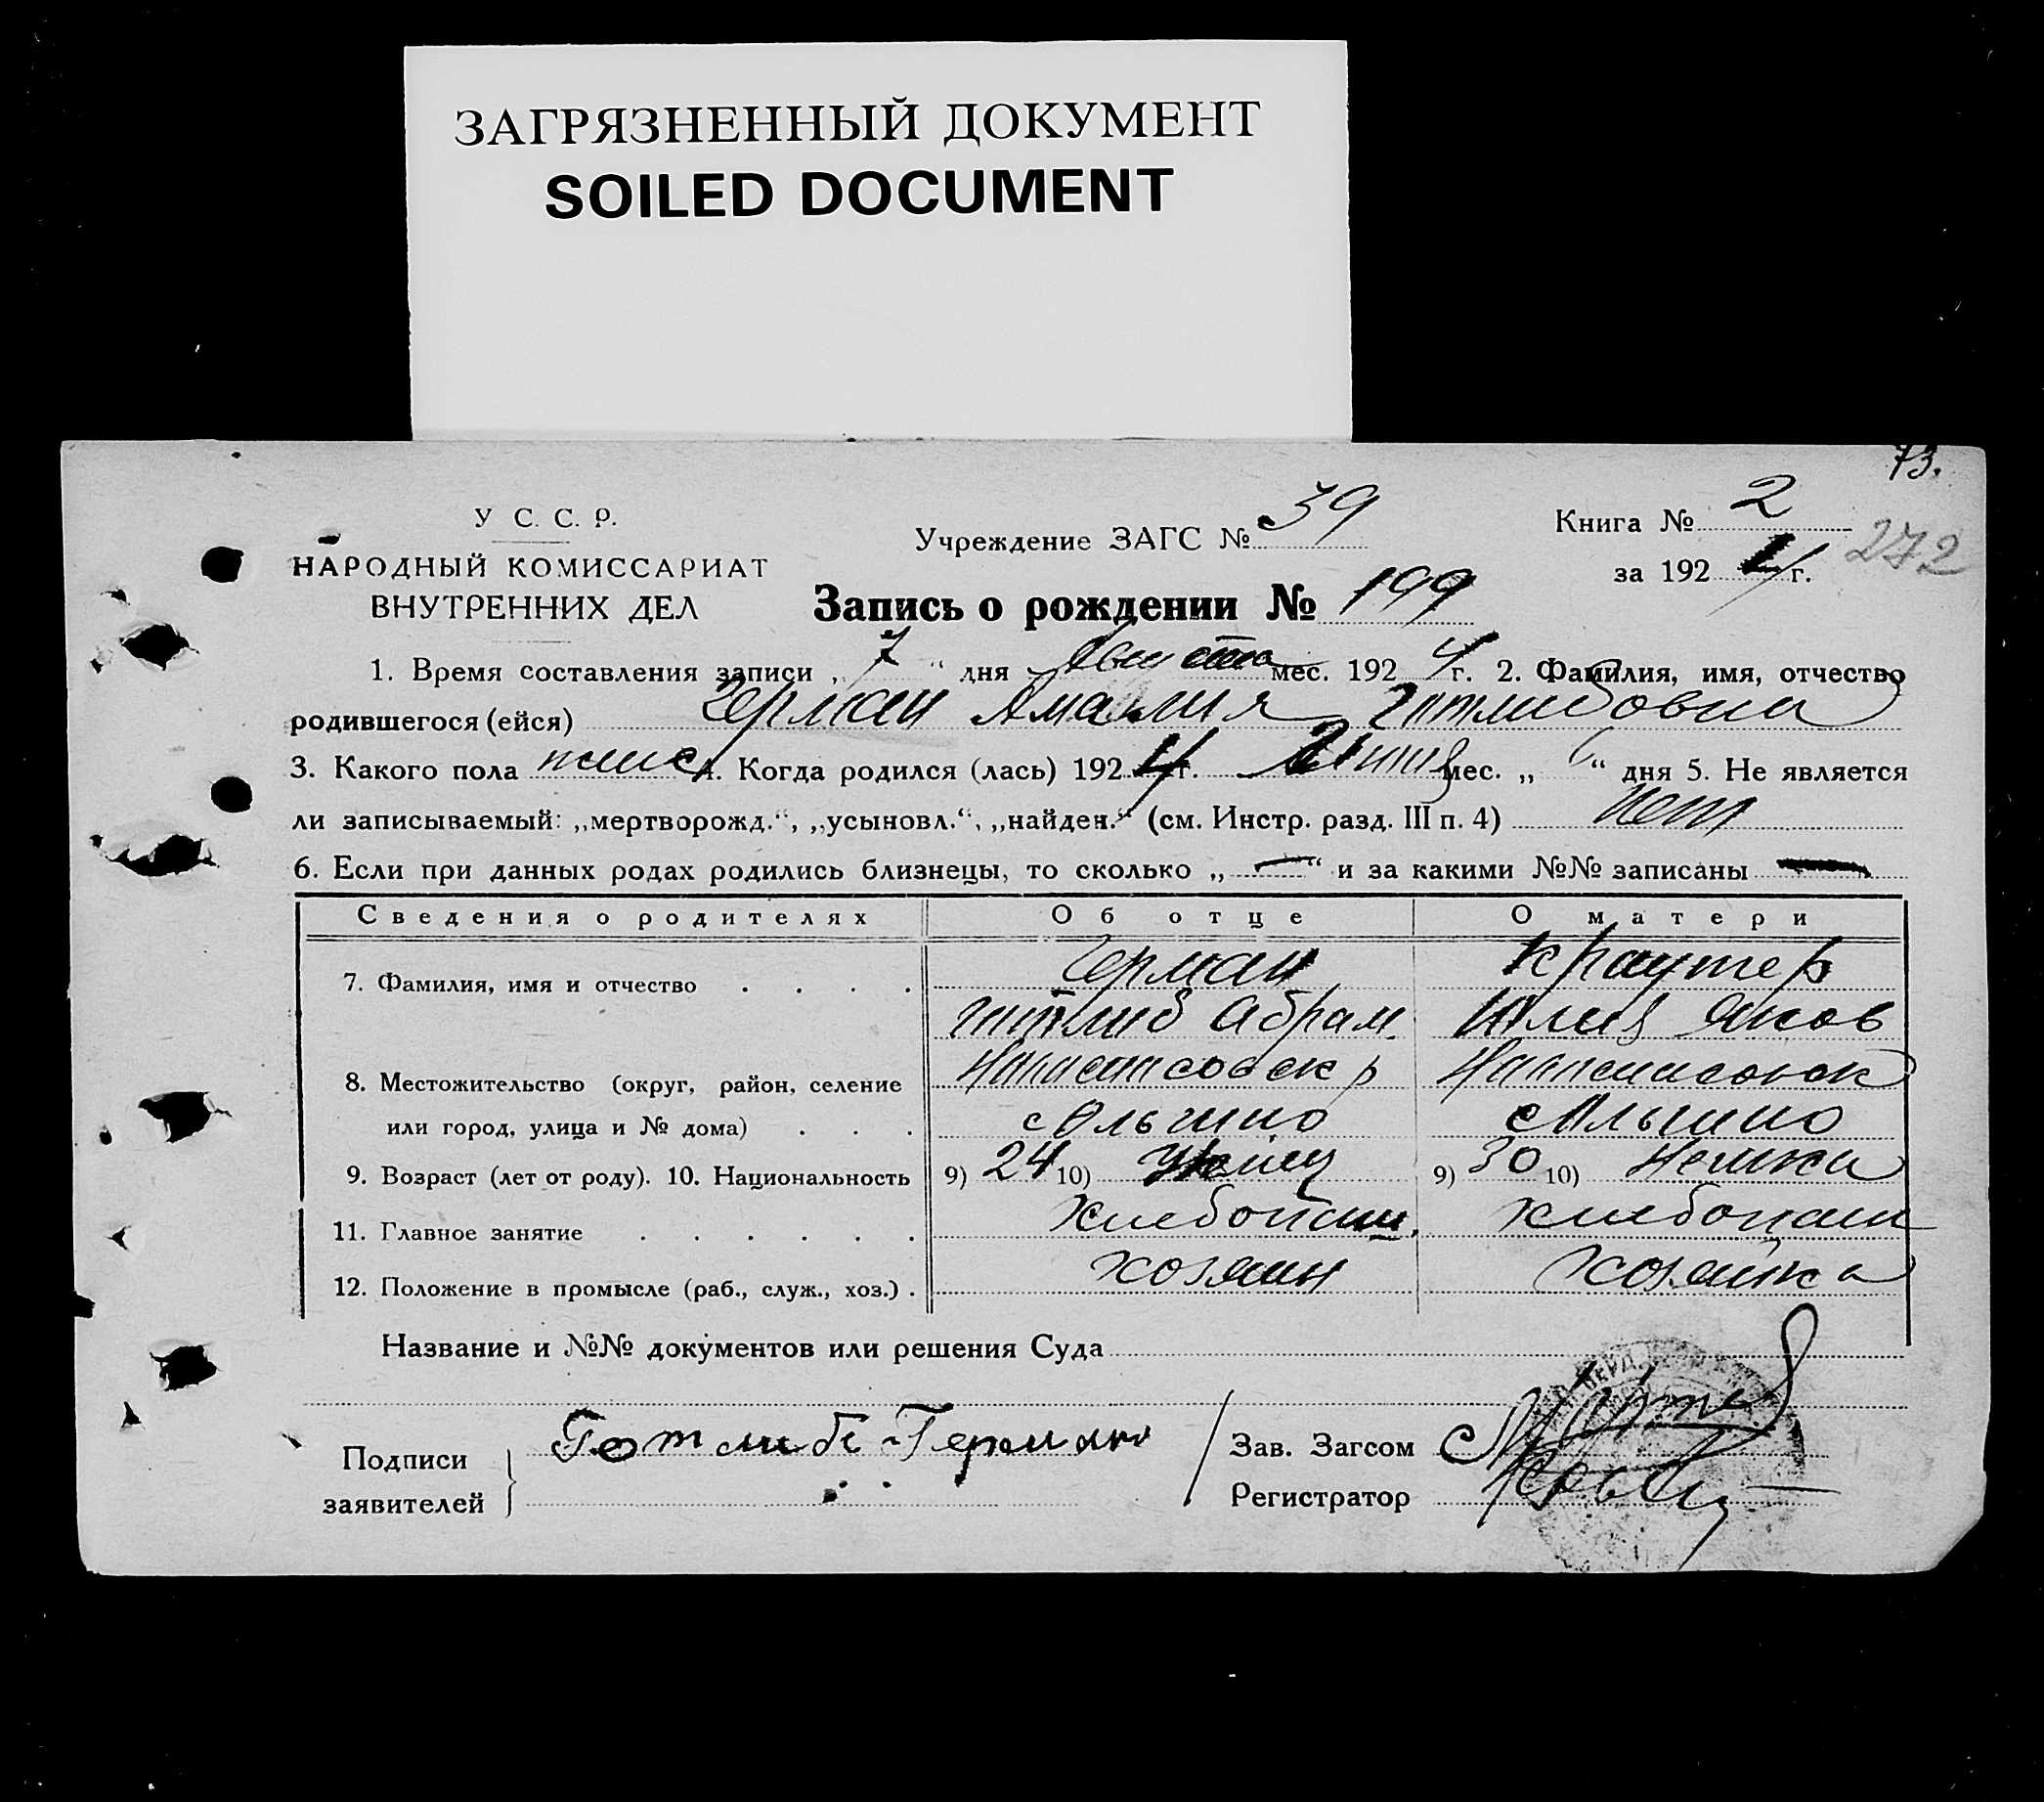 ЗАГРЯЗНЕННЫЙ ДОКУМЕНТ
SOILED DOCUMENT
73.
У С. С. Р.
НАРОДНЫЙ КОМИССАРИАТ
ВНУТРЕННИХ ДЕЛ
Учреждение ЗАГС № 39
Книга № 2
за 192 4 г. 272
Запись о рождении № 199
1. Время составления записи „ 7 “ дня Августа мес. 192 4 г. 2. Фамилия, имя, отчество
родившегося (ейся) Герман Амалия Готлибовна
3. Какого пола женс 4. Когда родился (лась) 192 4 г. мес. „ “ дня 5. Не является
ли записываемый: „мертворожд.“, „усыновл.“, „найден.“ (см. Инстр. разд. III п. 4) нет
6. Если при данных родах родились близнецы, то сколько „ — “ и за какими №№ записаны —
Сведения о родителях Об отце О матери
7. Фамилия, имя и отчество . . . . Герман Краутер
Готлиб Абрам. Юлия Яков
8. Местожительство (округ, район, селение
или город, улица и № дома) . . .
9. Возраст (лет от роду). 10. Национальность 9) 24 10) немец 9) 30 10) немка
11. Главное занятие . . . . . . хлебопаш. хлебопаш
12. Положение в промысле (раб., служ., хоз.) . хозяин хозяйка
Название и №№ документов или решения Суда
Подписи
заявителей
Готлибъ Германъ
Зав. Загсом
Регистратор